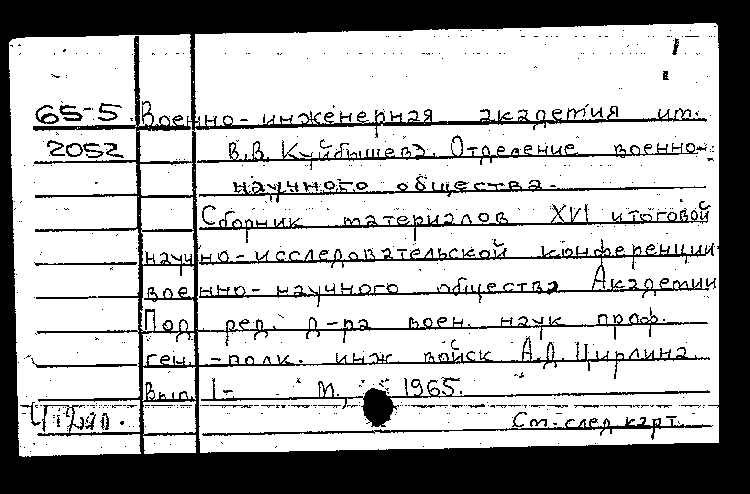 1
65-5 Военно-инженерная академия им.
2052 В.В. Куйбышева. Отделение военно-
научного общества.
Сборник материалов XVI итоговой
научно-исследовательской конференции
военно-научного общества Академии
Под ред. д-ра воен. наук проф.
ген.-полк. инж войск А.Д. Цирлина
Вып. 1- М., 1965.
См. след карт.